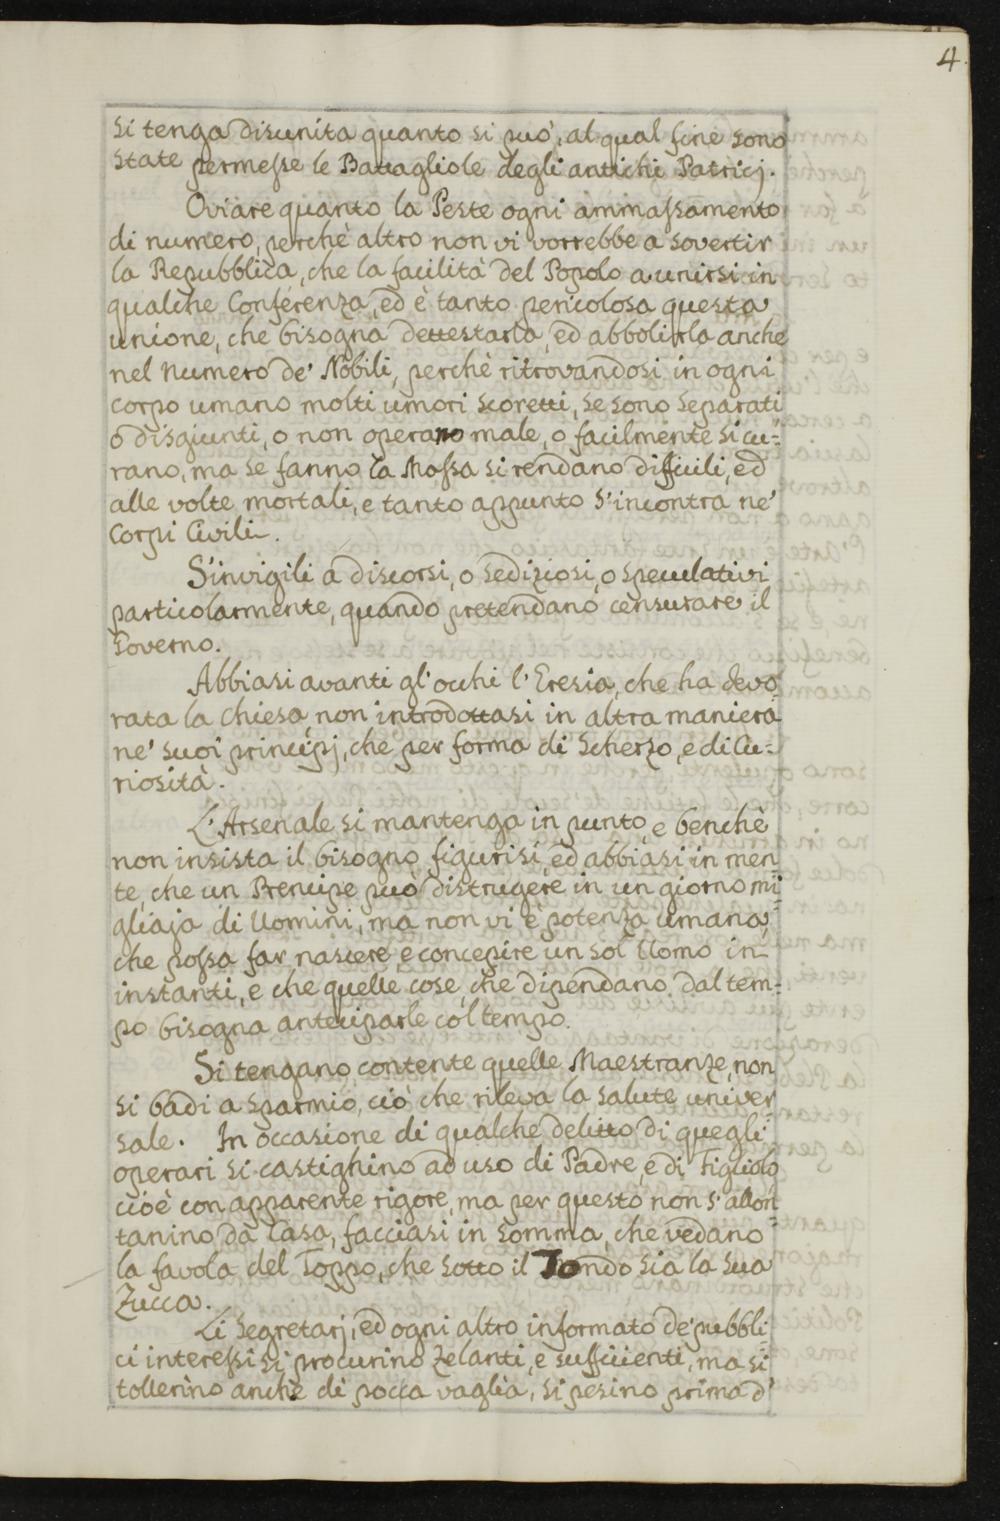 4.
si tenga disunita quanto si può, al qual fine sono
state permesse le Battagliole degli antichi Patricj.
Oviare quanto la Peste ogni ammassamento
di numero, perchè altro non vi vorrebbe a sovertir
la Repubblica, che la facilità del Popolo a unirsi in
qualche Conferenza, ed è tanto pericolosa questa
unione, che bisogna dettestarla, ed abbolirla anche
nel numero de' Nobili, perchè ritrovandosi in ogni
corpo umano molti umori scoretti, se sono separati
o disgiunti, o non operano male, o facilmente si cu=
rano, ma se fanno la Massa si rendano difficili, ed
alle volte mortali, e tanto appunto s'incontra ne'
Corpi Civili.
S'invigili a discorsi, o sediziosi, o speculativi
particolarmente, quando pretendano censurare il
Governo.
Abbiasi avanti gl'occhi l'Eresia, che ha devo=
rata la Chiesa non introdottasi in altra maniera
ne' suoi principj, che per forma di Scherzo, e di Cu=
riosità.
L'Arsenale si mantenga in punto, e benchè
non insista il bisogno figurisi, ed abbiasi in men
te, che un Prencipe può distrugere in un giorno mi=
gliaja di Uomini, ma non vi è potenza umana,
che possa far nascere, e concepire un sol Uomo in
instanti, e che quelle cose, che dipendano dal tem=
po bisogna anteciparle col tempo.
Si tengano contente quelle Maestranze, non
si badi a sparmio, ciò che rileva la salute univer=
sale. In occasione di qualche delitto di quegli
operari si castighino ad uso di Padre, e di Figliolo
cioè con apparente rigore, ma per questo non s'allon=
tanino da Casa, facciasi in somma, che vedano
la favola del Toppo, che sotto il Tondo sia la sua
Zucca.
Li Segretarj, ed ogni altro informato de' pubbli=
ci interessi si procurino zelanti, e sufficienti, ma si
tollerino anche di pocca vaglia, si pesino prima d'